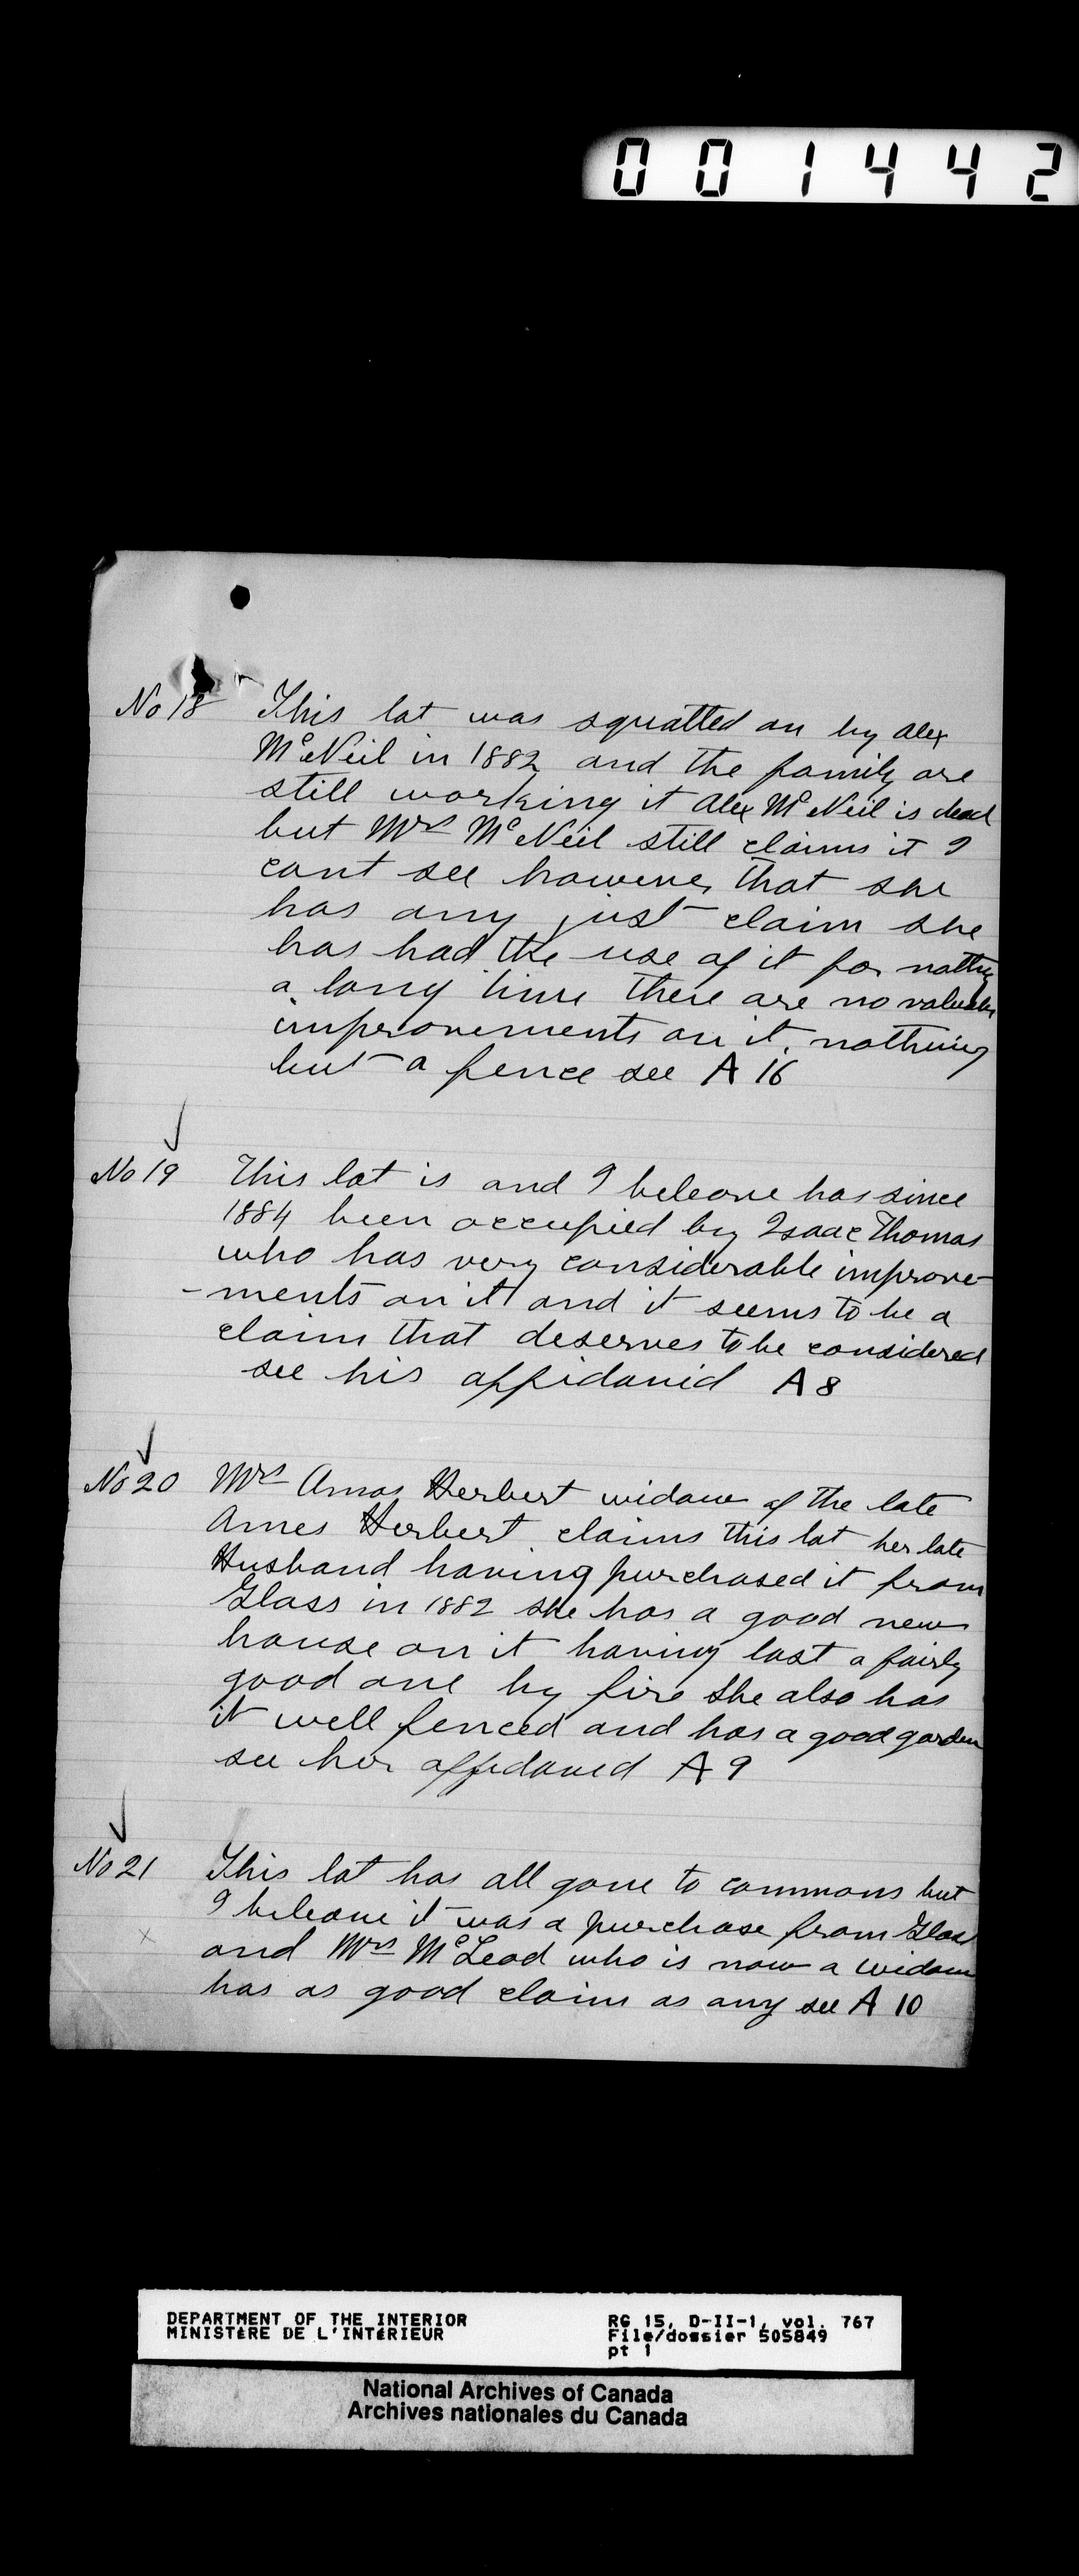 001442
No 18 This lot was squatted on by Alex
McNeil in 1882 and the family are
still working it Alex McNeil is dead
but Mrs McNeil still claims it I
cant see however that she
has any just claim she
has had the use of it for
a long time there are no
improvements on it. nothing
but a fence see A 16
No 19 This lot is and I beleave has since
1884 been occupied by Isaac Thomas
who has very considerable improve-
-ments on it and it seems to be a
claim that deserves to be considered
see his affidavid A 8
No 20 Mrs Amos Herbert widow of the late
Ames Herbert claims this lot her late
Husband having purchased it from
Glass in 1882 she has a good new
house on it having lost a fairly
good one by fire she also has
it well fenced and has a good garden
see her affedaved A 9
No 21 This lot has all gone to commons but
I beleave it was a purchase from Glass
and Mrs McLeod who is now a widow
has as good claim as any see A 10
DEPARTMENT OF THE INTERIOR RG 15, D-II-1, vol. 767
MINISTÈRE DE L'INTÉRIEUR File/dossier 505849
pt 1
National Archives of Canada
Archives nationales du Canada